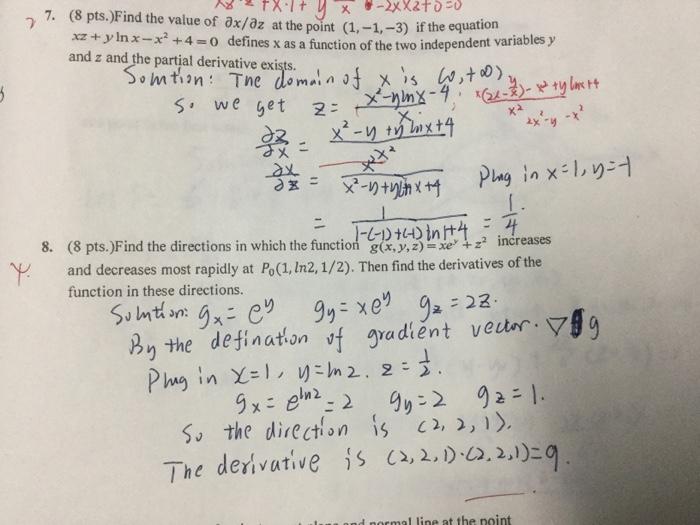 7. (8 pts.)Find the value of ∂x/∂z at the point (1,−1,−3) if the equation
xz + y ln x − x² + 4 = 0 defines x as a function of the two independent variables y
and z and the partial derivative exists.
Solution: The domain of x is (0,+∞)
So we get z = (x²-ylnx-4)/x.
∂z/∂x = (x²-y+ylnx+4)/x²
∂x/∂z = x²/(x²-y+ylnx+4) Plug in x=1, y=-1
= 1/(1-(-1)+(-1)ln1+4) = 1/4.
8. (8 pts.)Find the directions in which the function g(x,y,z) = xeʸ + z² increases
and decreases most rapidly at P₀(1, ln2, 1/2). Then find the derivatives of the
function in these directions.
Solution: gx = e^y gy = xe^y gz = 2z.
By the defination of gradient vector. ∇g
Plug in x=1, y=ln2. z=1/2.
gx = e^ln2 = 2 gy=2 gz=1.
So the direction is (2,2,1).
The derivative is (2,2,1)·(2,2,1)=9.
normal line at the point